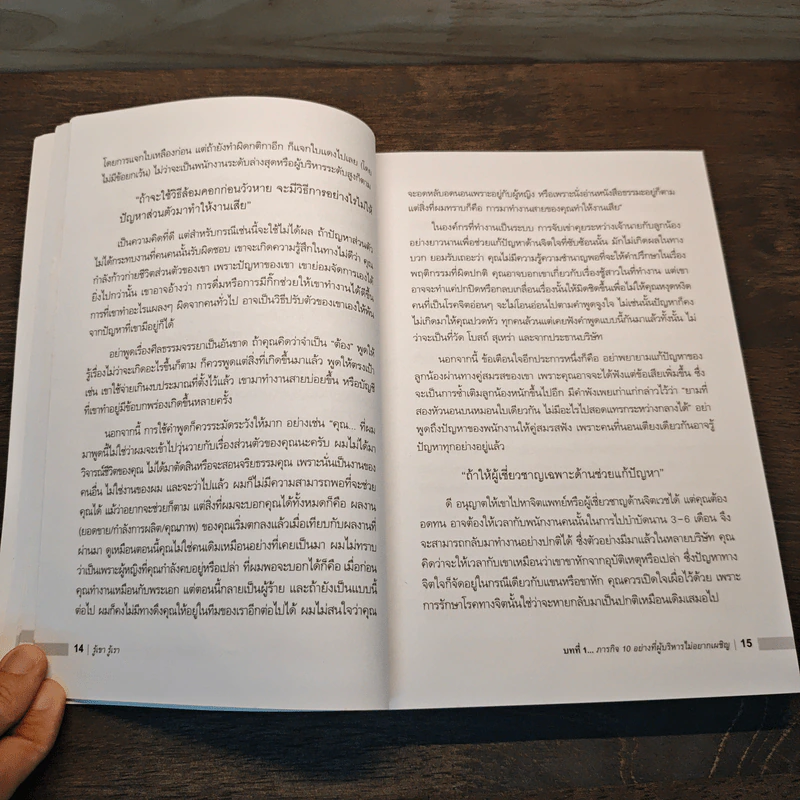 โดยการแจกใบเหลืองก่อน แต่ถ้ายังทำผิดกติกาอีก ก็แจกใบแดงไปเลย (โดย
ไม่มีข้อยกเว้น) ไม่ว่าจะเป็นพนักงานระดับล่างสุดหรือผู้บริหารระดับสูงก็ตาม
“ถ้าจะใช้วิธีล้อมคอกก่อนวัวหาย จะมีวิธีการอย่างไรไม่ให้
ปัญหาส่วนตัวมาทำให้งานเสีย”
เป็นความคิดที่ดี แต่สำหรับกรณีเช่นนี้จะใช้ไม่ได้ผล ถ้าปัญหาส่วนตัว
ไม่ได้กระทบงานที่คนคนนั้นรับผิดชอบ เขาจะเกิดความรู้สึกในทางไม่ดีว่า คุณ
กำลังก้าวก่ายชีวิตส่วนตัวของเขา เพราะปัญหาของเขา เขาย่อมจัดการเองได้
ยิ่งไปกว่านั้น เขาอาจอ้างว่า การดื่มหรือการมีกิ๊กช่วยให้เขาทำงานได้ดีขึ้น
การที่เขาทำอะไรแผลงๆ ผิดจากคนทั่วไป อาจเป็นวิธีปรับตัวของเขาเองให้พ้น
จากปัญหาที่เขามีอยู่ก็ได้
อย่าพูดเรื่องศีลธรรมจรรยาเป็นอันขาด ถ้าคุณคิดว่าจำเป็น “ต้อง” พูดให้
รู้เรื่องไม่ว่าจะเกิดอะไรขึ้นก็ตาม ก็ควรพูดแต่สิ่งที่เกิดขึ้นมาแล้ว พูดให้ตรงเป้า
เช่น เขาใช้จ่ายเกินงบประมาณที่ตั้งไว้แล้ว เขามาทำงานสายบ่อยขึ้น หรือบัญชี
ที่เขาทำอยู่มีข้อบกพร่องเกิดขึ้นหลายครั้ง
นอกจากนี้ การใช้คำพูดก็ควรระมัดระวังให้มาก อย่างเช่น “คุณ... ที่ผม
มาพูดนี้ไม่ใช่ว่าผมจะเข้าไปวุ่นวายกับเรื่องส่วนตัวของคุณนะครับ ผมไม่ได้มา
วิจารณ์ชีวิตของคุณ ไม่ได้มาตัดสินหรือจะสอนจริยธรรมคุณ เพราะนั่นเป็นงานของ
คนอื่น ไม่ใช่งานของผม และจะว่าไปแล้ว ผมก็ไม่มีความสามารถพอที่จะช่วย
คุณได้ แม้ว่าอยากจะช่วยก็ตาม แต่สิ่งที่ผมจะบอกคุณได้ทั้งหมดก็คือ ผลงาน
(ยอดขาย/กำลังการผลิต/คุณภาพ) ของคุณเริ่มตกลงแล้วเมื่อเทียบกับผลงานที่
ผ่านมา ดูเหมือนตอนนี้คุณไม่ใช่คนเดิมเหมือนอย่างที่เคยเป็นมา ผมไม่ทราบ
ว่าเป็นเพราะผู้หญิงที่คุณกำลังคบอยู่หรือเปล่า ที่ผมพอจะบอกได้ก็คือ เมื่อก่อน
คุณทำงานเหมือนกับพระเอก แต่ตอนนี้กลายเป็นผู้ร้าย และถ้ายังเป็นแบบนี้
ต่อไป ผมก็คงไม่มีทางดึงคุณให้อยู่ในทีมของเราอีกต่อไปได้ ผมไม่สนใจว่าคุณ
14 | รู้เขา รู้เรา
จะอดหลับอดนอนเพราะอยู่กับผู้หญิง หรือเพราะนั่งอ่านหนังสือธรรมะอยู่ก็ตาม
แต่สิ่งที่ผมทราบก็คือ การมาทำงานสายของคุณทำให้งานเสีย”
ในองค์กรที่ทำงานเป็นระบบ การจับเข่าคุยระหว่างเจ้านายกับลูกน้อง
อย่างยาวนานเพื่อช่วยแก้ปัญหาด้านจิตใจที่ซับซ้อนนั้น มักไม่เกิดผลในทาง
บวก ยอมรับเถอะว่า คุณไม่มีความรู้ความชำนาญพอที่จะให้คำปรึกษาในเรื่อง
พฤติกรรมที่ผิดปกติ คุณอาจบอกเขาเกี่ยวกับเรื่องชู้สาวในที่ทำงาน แต่เขา
อาจจะทำแค่ปกปิดหรือกลบเกลื่อนเรื่องนั้นให้มิดชิดขึ้นเพื่อไม่ให้คุณหงุดหงิด
คนที่เป็นโรคจิตอ่อนๆ จะไม่โอนอ่อนไปตามคำพูดจูงใจ ไม่เช่นนั้นปัญหาก็คง
ไม่เกิดมาให้คุณปวดหัว ทุกคนล้วนแต่เคยฟังคำพูดแบบนี้กันมาแล้วทั้งนั้น ไม่
ว่าจะเป็นที่วัด โบสถ์ สุเหร่า และจากประธานบริษัท
นอกจากนี้ ข้อเตือนใจอีกประการหนึ่งก็คือ อย่าพยายามแก้ปัญหาของ
ลูกน้องผ่านทางคู่สมรสของเขา เพราะคุณอาจจะได้ฟังแต่ข้อเสียเพิ่มขึ้น ซึ่ง
จะเป็นการซ้ำเติมลูกน้องหนักขึ้นไปอีก มีคำพังเพยเก่าแก่กล่าวไว้ว่า “ยามที่
สองหัวนอนบนหมอนใบเดียวกัน ไม่มีอะไรไปสอดแทรกระหว่างกลางได้” อย่า
พูดถึงปัญหาของพนักงานให้คู่สมรสฟัง เพราะคนที่นอนเตียงเดียวกันอาจรู้
ปัญหาทุกอย่างอยู่แล้ว
“ถ้าให้ผู้เชี่ยวชาญเฉพาะด้านช่วยแก้ปัญหา”
ดี อนุญาตให้เขาไปหาจิตแพทย์หรือผู้เชี่ยวชาญด้านจิตเวชได้ แต่คุณต้อง
อดทน อาจต้องให้เวลากับพนักงานคนนั้นในการไปบำบัดนาน 3–6 เดือน จึง
จะสามารถกลับมาทำงานอย่างปกติได้ ซึ่งตัวอย่างมีมาแล้วในหลายบริษัท คุณ
คิดว่าจะให้เวลากับเขาเหมือนว่าเขาขาหักจากอุบัติเหตุหรือเปล่า ซึ่งปัญหาทาง
จิตใจก็จัดอยู่ในกรณีเดียวกับแขนหรือขาหัก คุณควรเปิดใจเผื่อไว้ด้วย เพราะ
การรักษาโรคทางจิตนั้นใช่ว่าจะหายกลับมาเป็นปกติเหมือนเดิมเสมอไป
บทที่ 1... ภารกิจ 10 อย่างที่ผู้บริหารไม่อยากเผชิญ | 15